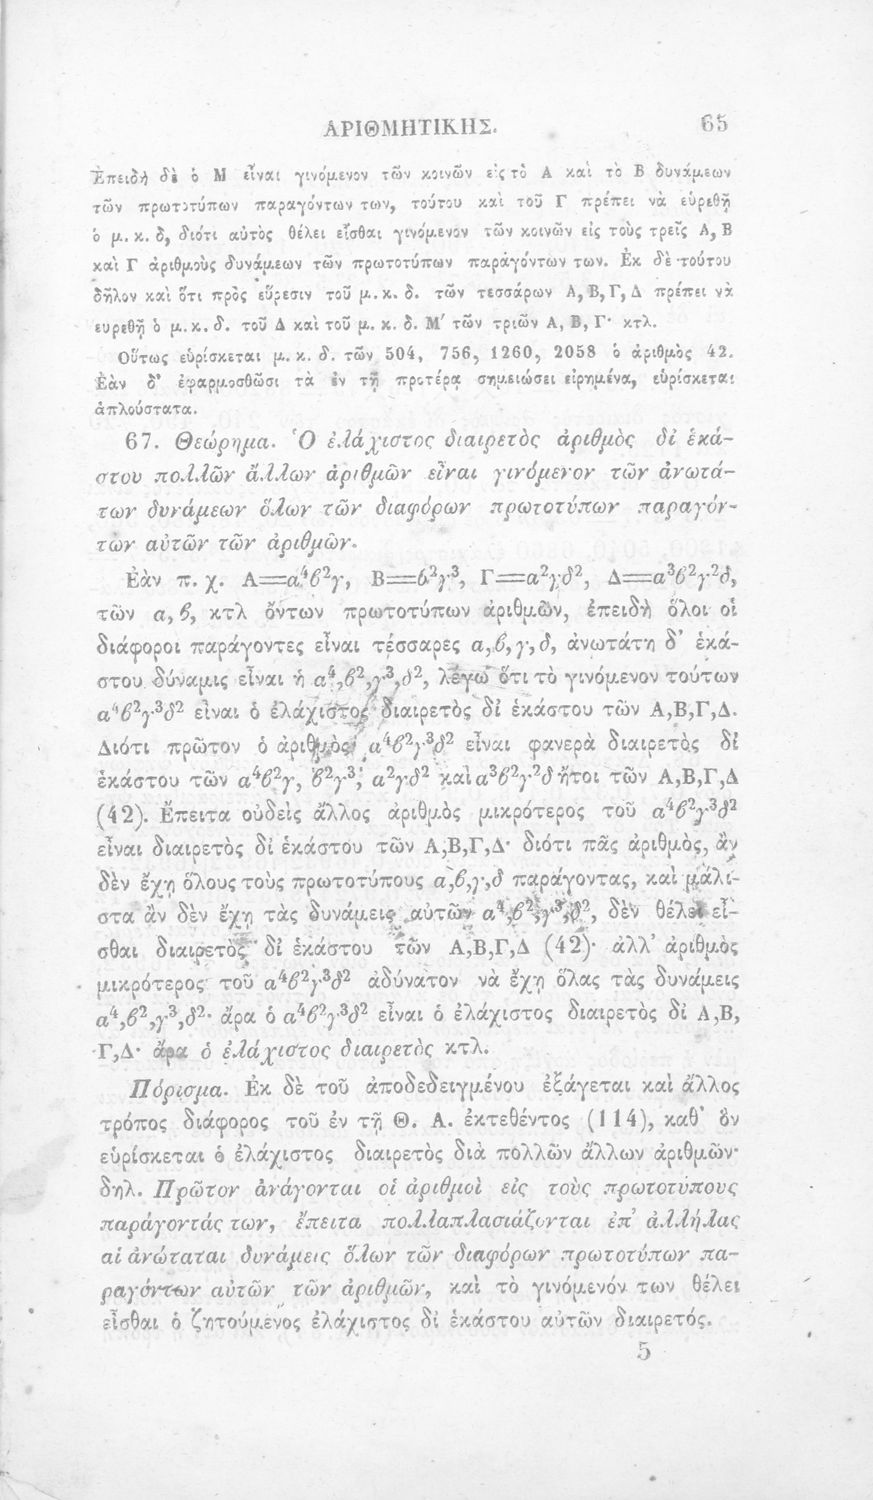 ΑΡΙΘΜΗΤΙΚΗΣ. 65
Ἐπειδὴ δὲ ὁ Μ εἶναι γινόμενον τῶν κοινῶν εἰς τὸ Α καὶ τὸ Β δυνάμεων
τῶν πρωτοτύπων παραγόντων των, τούτου καὶ τοῦ Γ πρέπει νὰ εὑρεθῇ
ὁ μ. κ. δ, διότι αὐτὸς θέλει εἶσθαι γινόμενον τῶν κοινῶν εἰς τοὺς τρεῖς Α, Β
καὶ Γ ἀριθμοὺς δυνάμεων τῶν πρωτοτύπων παραγόντων των. Ἐκ δὲ τούτου
δῆλον καὶ ὅτι πρὸς εὕρεσιν τοῦ μ. κ. δ. τῶν τεσσάρων Α, Β, Γ, Δ πρέπει νὰ
ευρεθῇ ὁ μ. κ. δ. τοῦ Δ καὶ τοῦ μ. κ. δ. Μ′ τῶν τριῶν Α, Β, Γ· κτλ.
Οὕτως εὑρίσκεται μ. κ. δ. τῶν 504, 756, 1260, 2058 ὁ ἀριθμὸς 42.
Ἐὰν δ' ἐφαρμοσθῶσι τὰ ἐν τῇ προτέρᾳ σημειώσει εἰρημένα, εὑρίσκεται
ἁπλούστατα.
67. Θεώρημα. Ὁ ἐλάχιστος διαιρετὸς ἀριθμὸς δι' ἑκά-
στου πολλῶν ἄλλων ἀριθμῶν εἶναι γινόμενον τῶν ἀνωτά-
των δυνάμεων ὅλων τῶν διαφόρων πρωτοτύπων παραγόν-
των αὐτῶν τῶν ἀριθμῶν.
Ἐὰν π. χ. Α=α⁴β²γ, Β=β²γ³, Γ=α²γδ², Δ=α³β²γ²δ,
τῶν α, β, κτλ ὄντων πρωτοτύπων ἀριθμῶν, ἐπειδὴ ὅλοι οἱ
διάφοροι παράγοντες εἶναι τέσσαρες α,β,γ,δ, ἀνωτάτη δ' ἑκά-
στου δύναμις εἶναι ἡ α⁴,β²,γ³,δ², λέγω ὅτι τὸ γινόμενον τούτων
α⁴β²γ³δ² εἶναι ὁ ἐλάχιστος διαιρετὸς δι' ἑκάστου τῶν Α,Β,Γ,Δ.
Διότι πρῶτον ὁ ἀριθμὸς α⁴β²γ³δ² εἶναι φανερὰ διαιρετὸς δι'
ἑκάστου τῶν α⁴β²γ, β²γ³, α²γδ² καὶ α³β²γ²δ ἤτοι τῶν Α,Β,Γ,Δ
(42). Ἔπειτα οὐδεὶς ἄλλος ἀριθμὸς μικρότερος τοῦ α⁴β²γ³δ²
εἶναι διαιρετὸς δι' ἑκάστου τῶν Α,Β,Γ,Δ· διότι πᾶς ἀριθμὸς, ἂν
δὲν ἔχῃ ὅλους τοὺς πρωτοτύπους α,β,γ,δ παράγοντας, καὶ μάλι-
στα ἂν δὲν ἔχῃ τὰς δυνάμεις αὐτῶν α⁴,β²,γ³,δ², δὲν θέλει εἶ-
σθαι διαιρετὸς δι' ἑκάστου τῶν Α,Β,Γ,Δ (42)· ἀλλ' ἀριθμὸς
μικρότερος τοῦ α⁴β²γ³δ² ἀδύνατον νὰ ἔχῃ ὅλας τὰς δυνάμεις
α⁴,β²,γ³,δ²· ἄρα ὁ α⁴β²γ³δ² εἶναι ὁ ἐλάχιστος διαιρετὸς δι' Α,Β,
Γ,Δ· ἄρα ὁ ἐλάχιστος διαιρετὸς κτλ.
Πόρισμα. Ἐκ δὲ τοῦ ἀποδεδειγμένου ἐξάγεται καὶ ἄλλος
τρόπος διάφορος τοῦ ἐν τῇ Θ. Α. ἐκτεθέντος (114), καθ' ὃν
εὑρίσκεται ὁ ἐλάχιστος διαιρετὸς διὰ πολλῶν ἄλλων ἀριθμῶν·
δηλ. Πρῶτον ἀνάγονται οἱ ἀριθμοὶ εἰς τοὺς πρωτοτύπους
παράγοντάς των, ἔπειτα πολλαπλασιάζονται ἐπ' ἀλλήλας
αἱ ἀνώταται δυνάμεις ὅλων τῶν διαφόρων πρωτοτύπων πα-
ραγόντων αὐτῶν τῶν ἀριθμῶν, καὶ τὸ γινόμενόν των θέλει
εἶσθαι ὁ ζητούμενος ἐλάχιστος δι' ἑκάστου αὐτῶν διαιρετός.
5